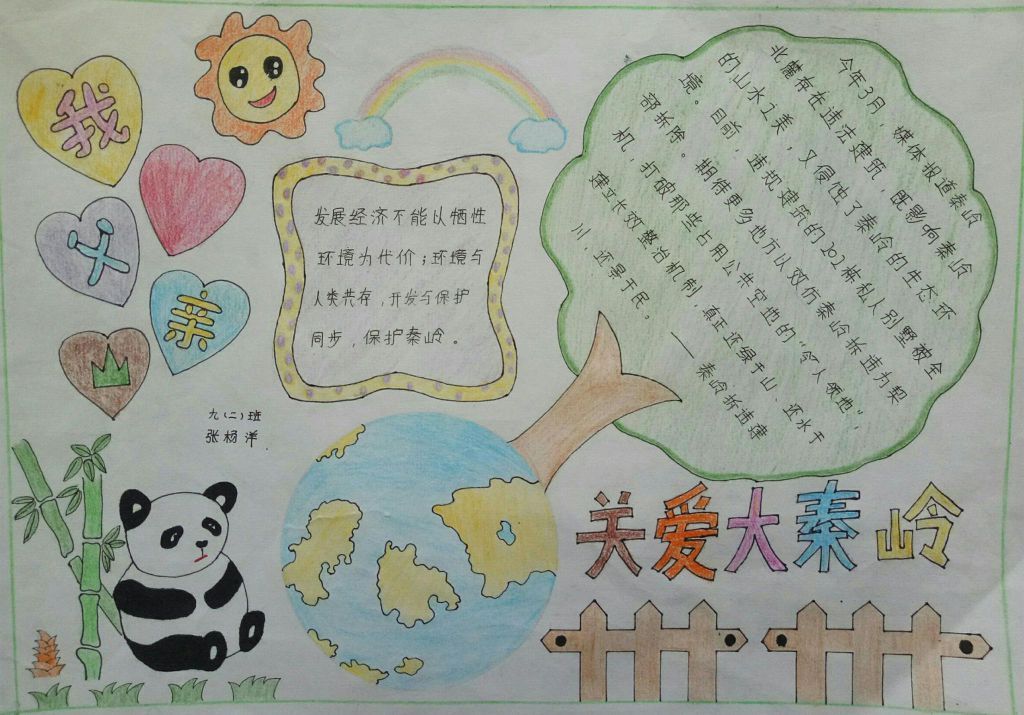 我
父
亲
山
发展经济不能以牺牲
环境为代价；环境与
人类共存，开发与保护
同步，保护秦岭。
九(二)班
张杨洋
今年3月，媒体报道秦岭
北麓存在违法建筑，既影响秦岭
的山水之美，又侵蚀了秦岭的生态环
境。目前，违规建筑的202栋私人别墅被全
部拆除。期待更多地方以效仿秦岭拆违为契
机，打破那些占用公共空地的“令人领地”，
建立长效整治机制，真正还绿于山、还水于
川、还景于民。
——秦岭拆违建
关爱大秦岭